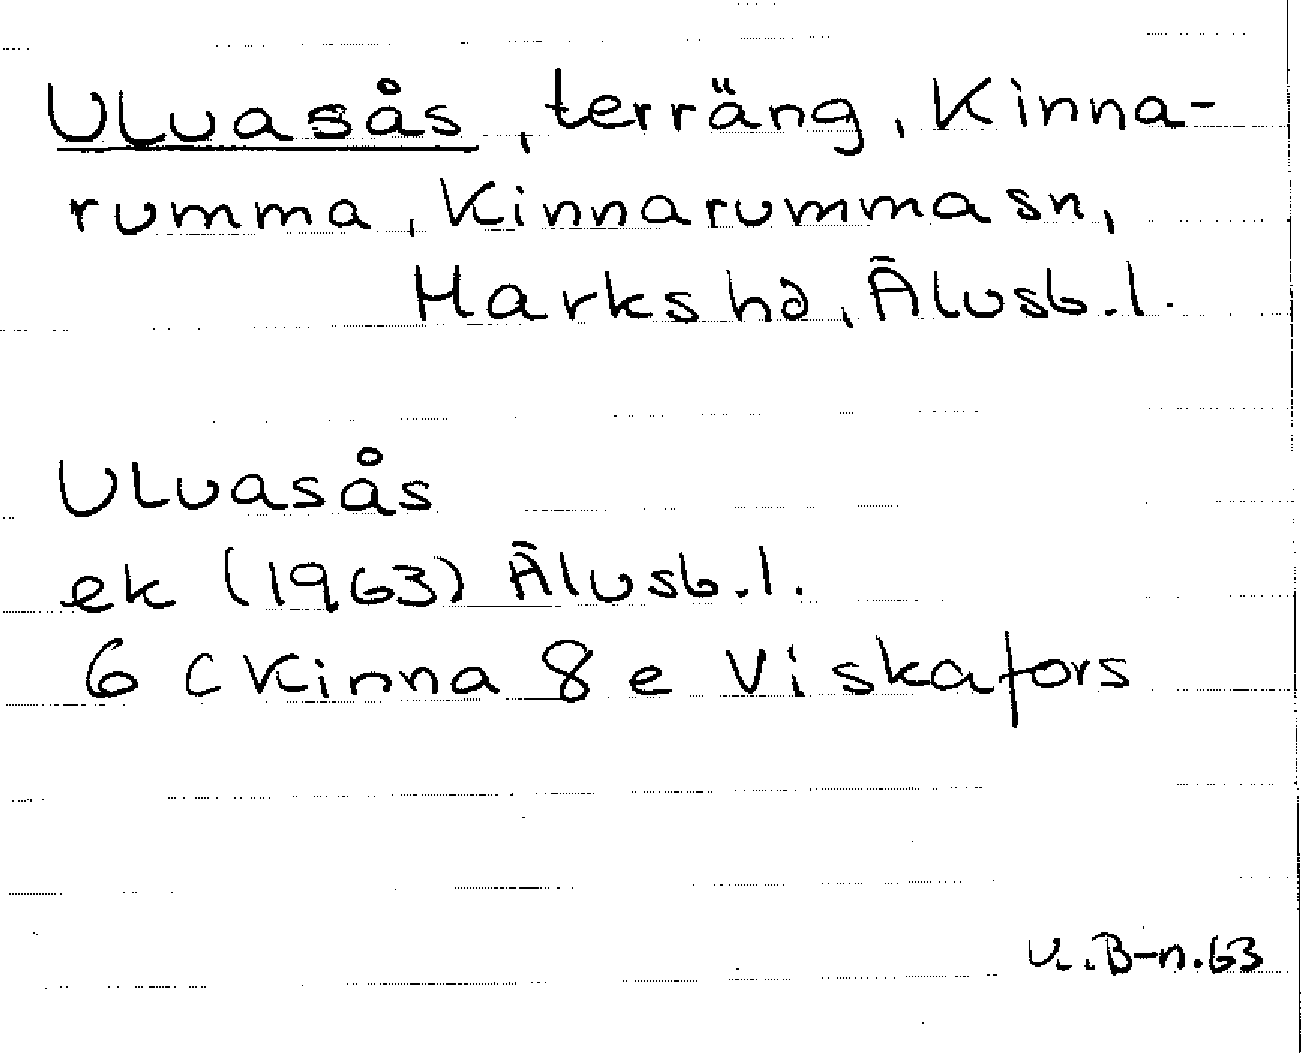 Ulvasås, terräng, Kinna-
rumma, Kinnarumma sn,
Marks hd, Älvsb.l.
Ulvasås
ek (1963) Älvsb.l.
6 C Kinna 8 e Viskafors
B-n. 63